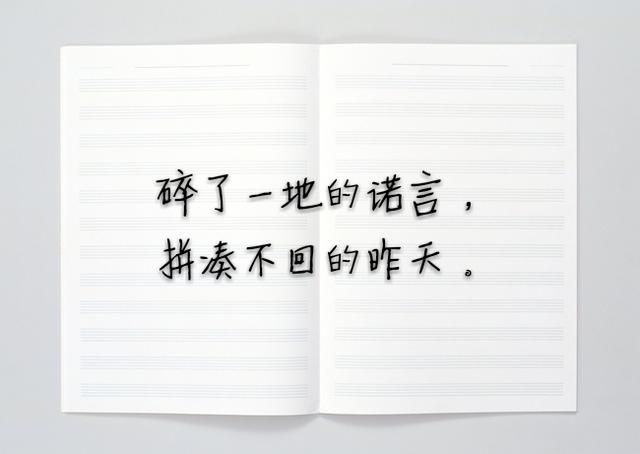 碎了一地的诺言，
拼凑不回的昨天。